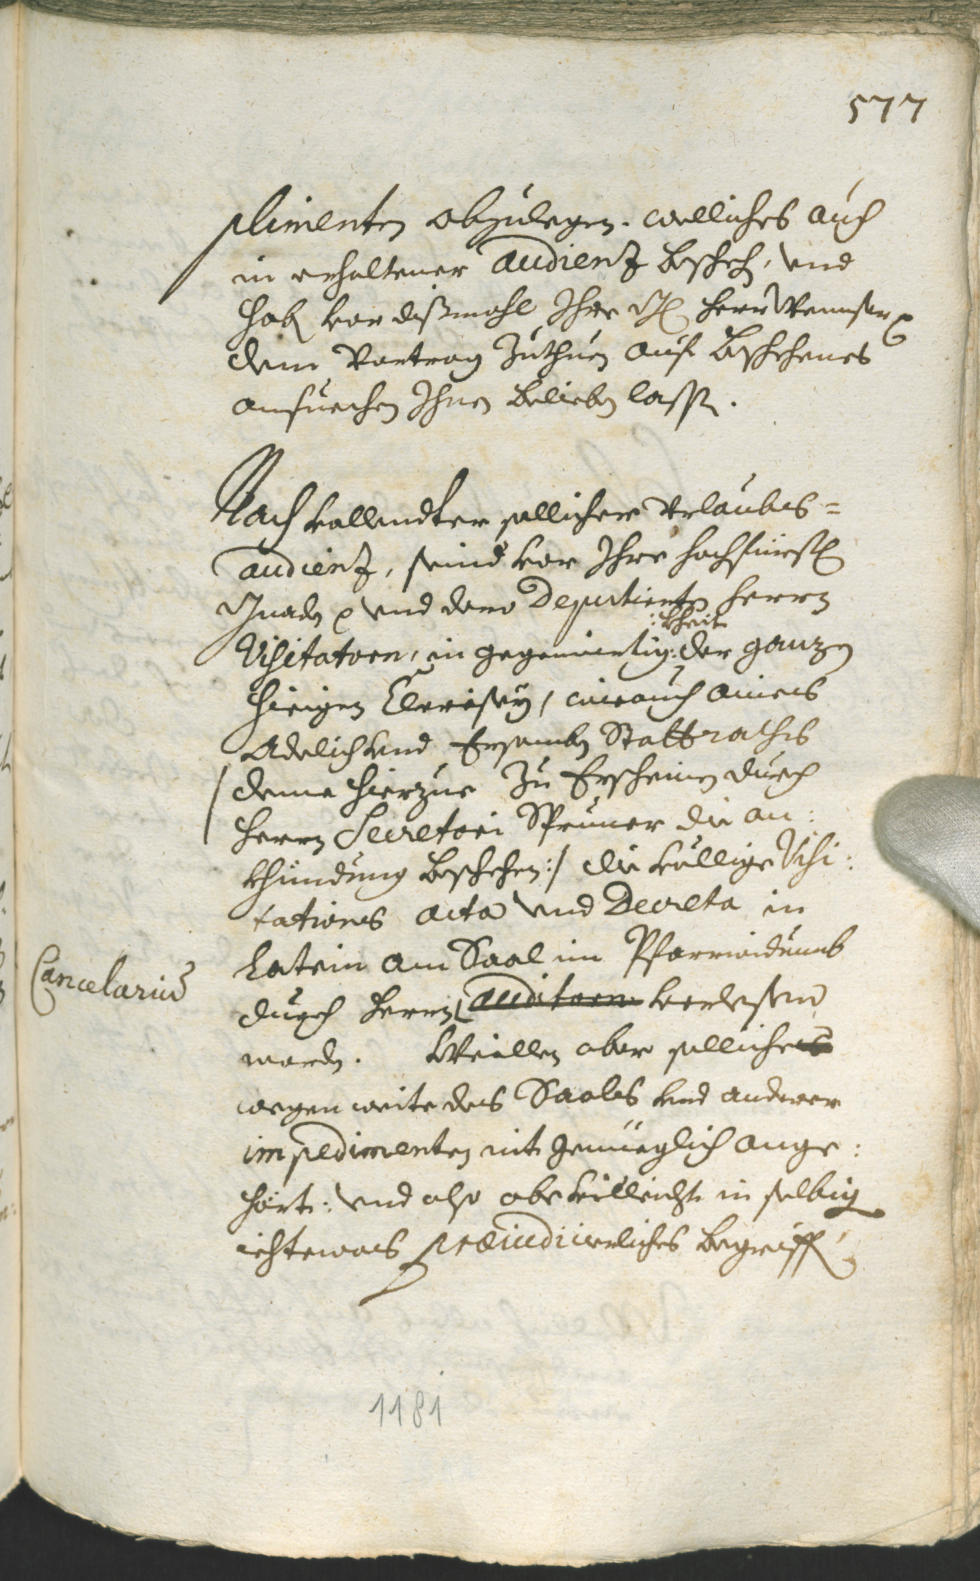 577
plimenten abzulegen. welliches auch
in erhaltener Audienz beschech, und
hab vor dißmahl Ihre Herr
dem Vortrag zuthuen auf beschehenes
ansuechen Ihnen belieben lassen.
Nach vollendter sollicher Urlaubs=
audienz, seind vor Ihre hochfürstl
Gnaden und dero Deputierten Herrn
Visitatorn, in gegenwertig:kheit der ganzen
hieigen Clerisey, wie auch aines
Adelich und Ersamben Stattrathes
/ deme hierzue zu Erscheinen durch
Herrn Secretari Spruner die an:
khündung beschehen:/ die völlige Visi:
tationes acta und Decreta in
Latein am Saal im Pfarrwidumb
Cancelarius
durch Herrn Auditorn verlesen
worden. Weillen aber solliches
wegen weite des Saales und anderer
impedimenten nit genüeglich ange:
hört: und also ob villeicht in selbig
ichtewas præiudicierliches begriffen
1181